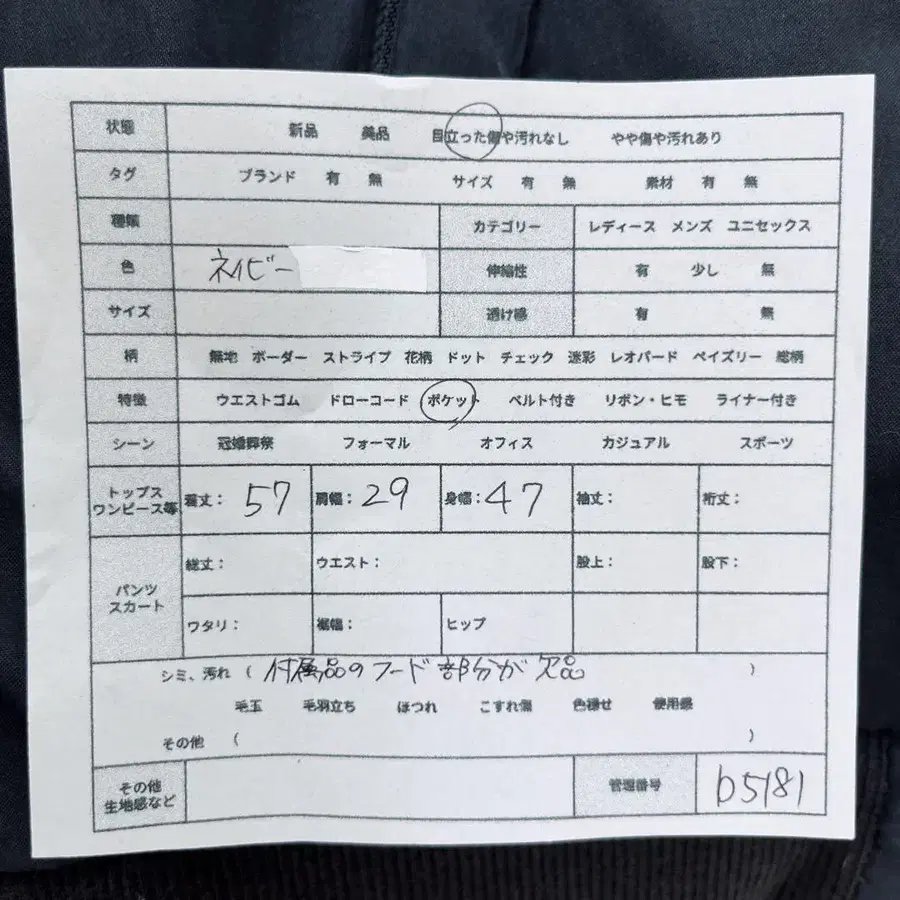 状態 新品 美品 目立った傷や汚れなし やや傷や汚れあり
タグ ブランド 有 無 サイズ 有 無 素材 有 無
種類 カテゴリー レディース メンズ ユニセックス
色 ネイビー 伸縮性 有 少し 無
サイズ 透け感 有 無
柄 無地 ボーダー ストライプ 花柄 ドット チェック 迷彩 レオパード ペイズリー 総柄
特徴 ウエストゴム ドローコード ポケット ベルト付き リボン・ヒモ ライナー付き
シーン 冠婚葬祭 フォーマル オフィス カジュアル スポーツ
トップス
ワンピース等 着丈: 57 肩幅: 29 身幅: 47 袖丈: 裄丈:
パンツ
スカート
総丈: ウエスト: 股上: 股下:
ワタリ: 裾幅: ヒップ
シミ、汚れ ( 付属品のフード部分が欠品 )
毛玉 毛羽立ち ほつれ こすれ傷 色褪せ 使用感
その他 ( )
その他
生地感など 管理番号 b5181